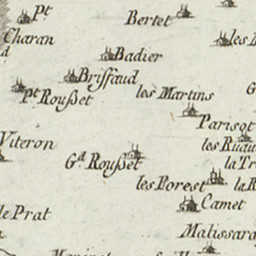 Pt
Bertet
Charan
les
Badier
d
Briffaud
Pt Rousset
les Martins
G
Parisot
Viteron
les Ruau
Gd Rousset
la Tr
les Forest
la R
Camet
le Prat
Malissara